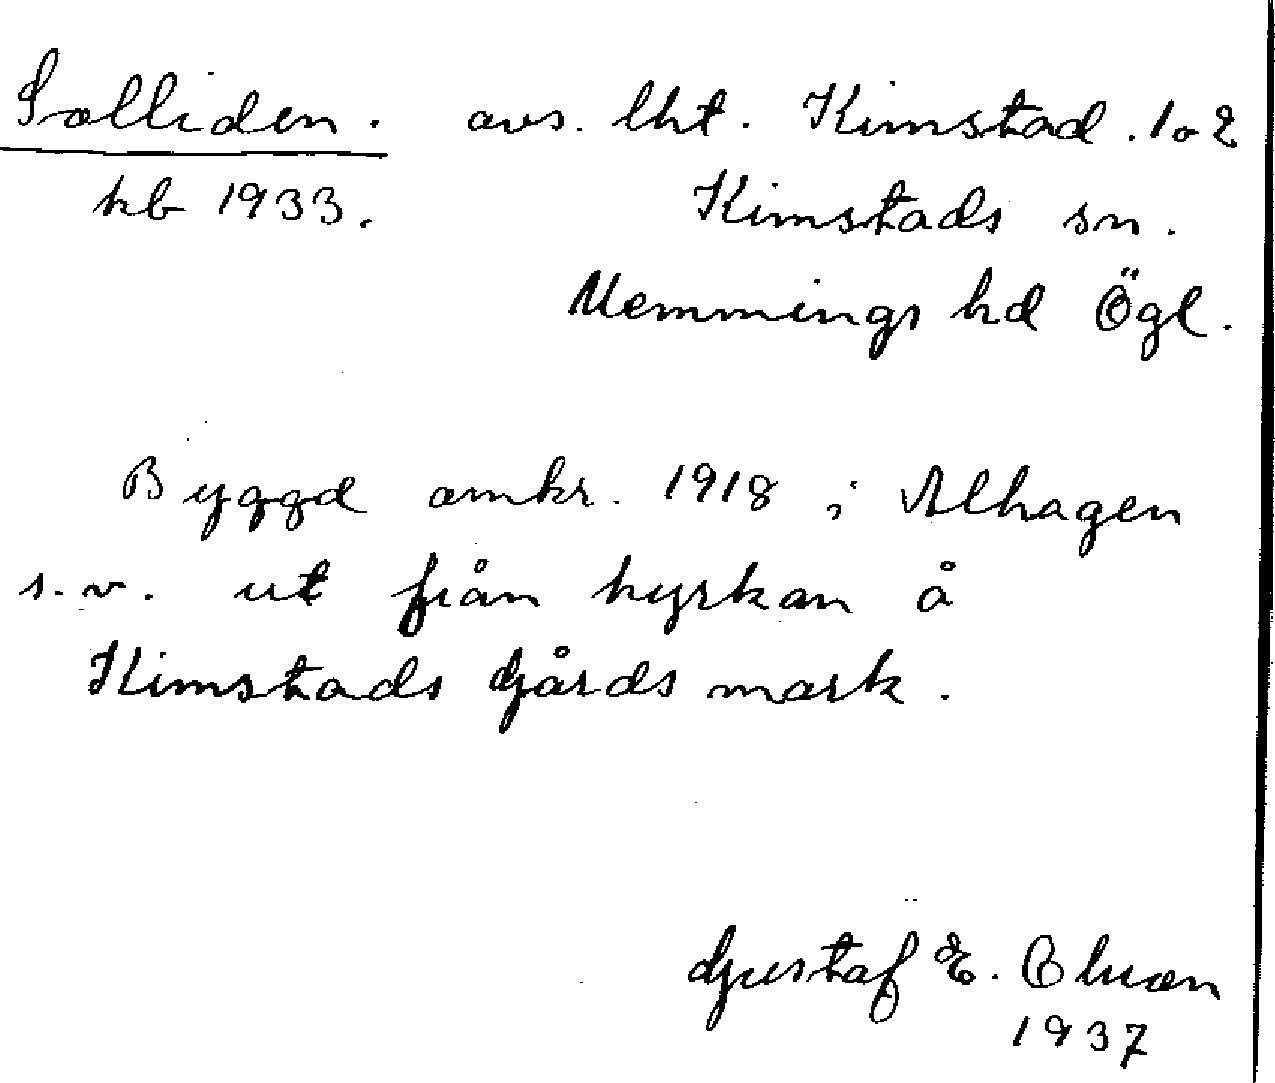 Solliden. avs. lht. Kimstad. 1 o 2
kb 1933. Kimstads sn.
Memmings hd Ögl.
Byggd omkr. 1918 i Alhagen
s.v. ut från kyrkan å
Kimstads Gårds mark.
Gustaf E.
1937